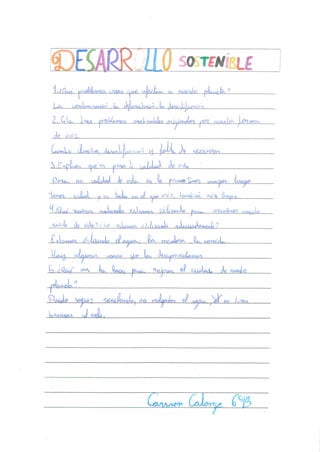 DESARROLLO SOSTENIBLE
1. ¿Qué problemas crees que afectan a nuestro planeta?
La contaminación, la deforestación, la desertificación.
2. Cita tres problemas ambientales originados por nuestra forma
de vida.
Cambio climático, desertificación y falta de recursos
3. Explica que es para ti calidad de vida
Para mi calidad de vida es lo primero tener amigos, luego
tener salud
4. ¿Qué recursos naturales estamos utilizando para mantener nuestro
modo de vida? ¿Los estamos utilizando adecuadamente?
Estamos utilizando el agua, la madera, la comida.
Hay algunas veces que los desaprovechamos
5. ¿Qué vas ha hacer para mejorar el cuidado de nuestro
planeta?
Puedo seguir reciclando, no malgastar el agua, y no tirar
basuras al suelo.
Carmen Calonge 6ºB